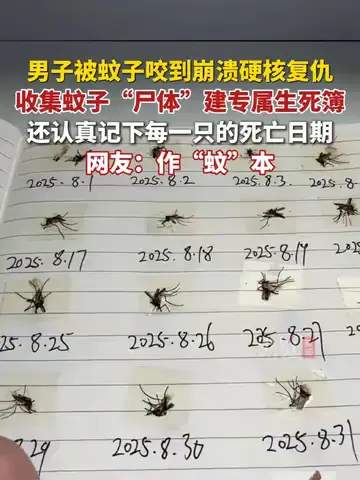 男子被蚊子咬到崩溃硬核复仇
收集蚊子“尸体”建专属生死簿
还认真记下每一只的死亡日期
网友：作“蚊”本
2025.8.1
2025.8.2
2025.8.3.
2025.8.
2025.8.17
2025.8.18
2025.8.19
25.8.25
2025.8.26
2025.8.
29
2025.8.30
2025.8.31